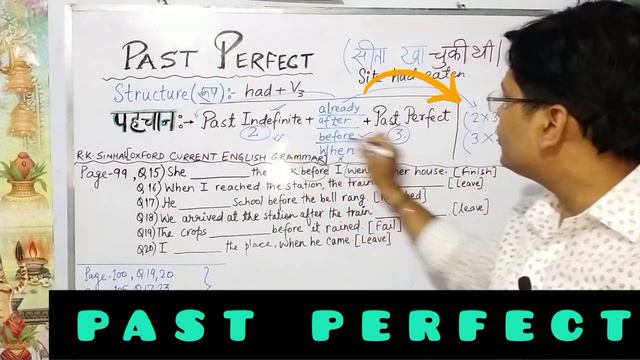 PAST PERFECT
(सीता खा चुकी थी |
Sita had eaten
Structure (रूप):- had + V3
already
पहचान:→ Past Indefinite + after + Past Perfect
(2) before (3)
When
(2×3
(3×
R.K. SINHA [OXFORD CURRENT ENGLISH GRAMMAR]
Page-99, Q.15) She ______ the before I went her house. [finish]
Q.16) When I reached the station, the train [leave]
Q.17) He ______ school before the bell rang.
Q.18) We arrived at the station after the train ______ [leave]
Q.19) The crops ______ before it rained. [Fail]
Q.20) I ______ the place, when he came [Leave]
Page-100, Q.19,20
PAST PERFECT